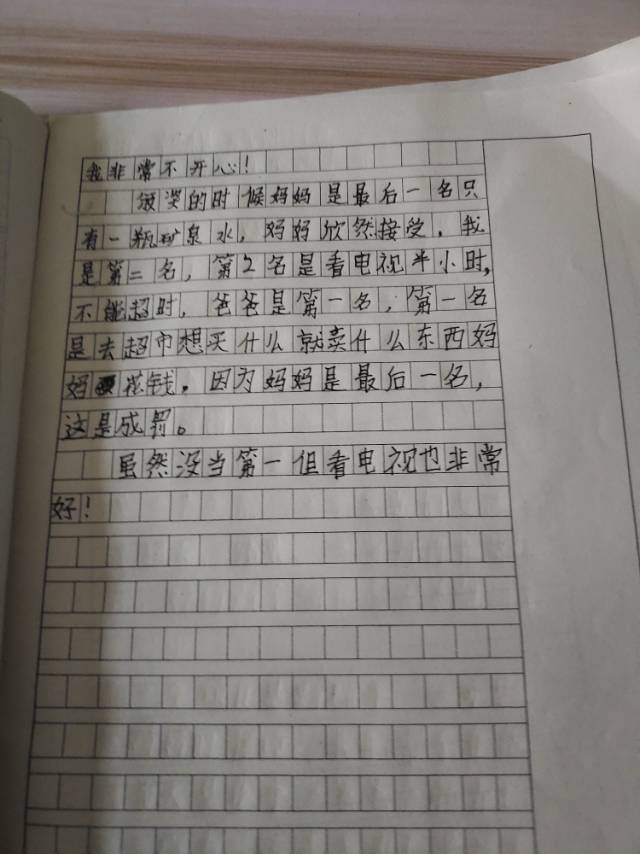 我非常不开心!
颁奖的时候妈妈是最后一名只
有一瓶矿泉水,妈妈欣然接受,我
是第二名,第2名是看电视半小时,
不能超时,爸爸是第一名,第一名
是去超市想买什么就卖什么东西妈
妈花钱,因为妈妈是最后一名,
这是成罚。
虽然没当第一但看电视也非常
好!